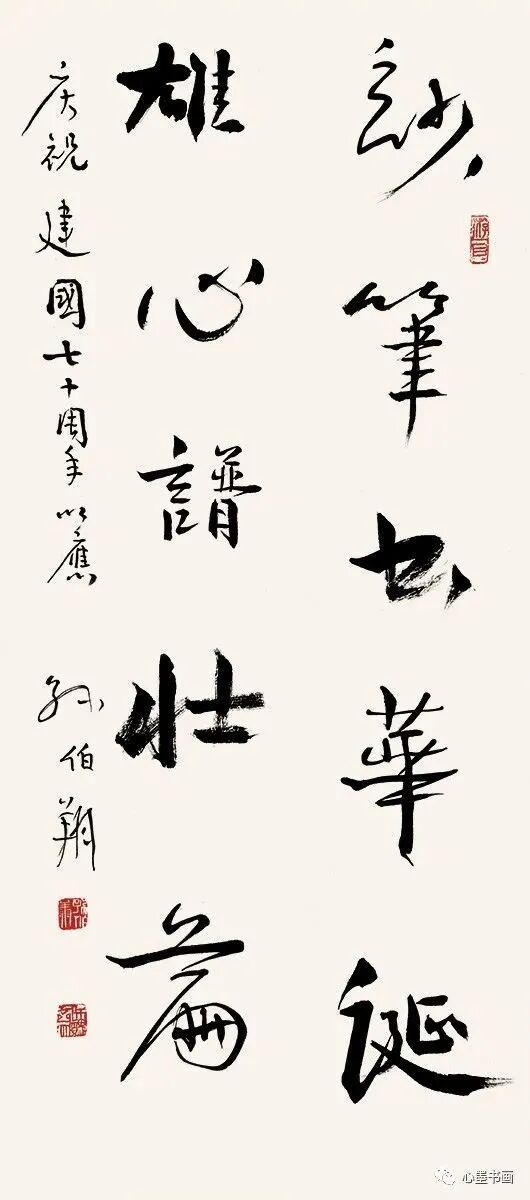 妙筆书華诞
雄心譜壯篇
庆祝建國七十周年以應
孫伯翔
心墨书画